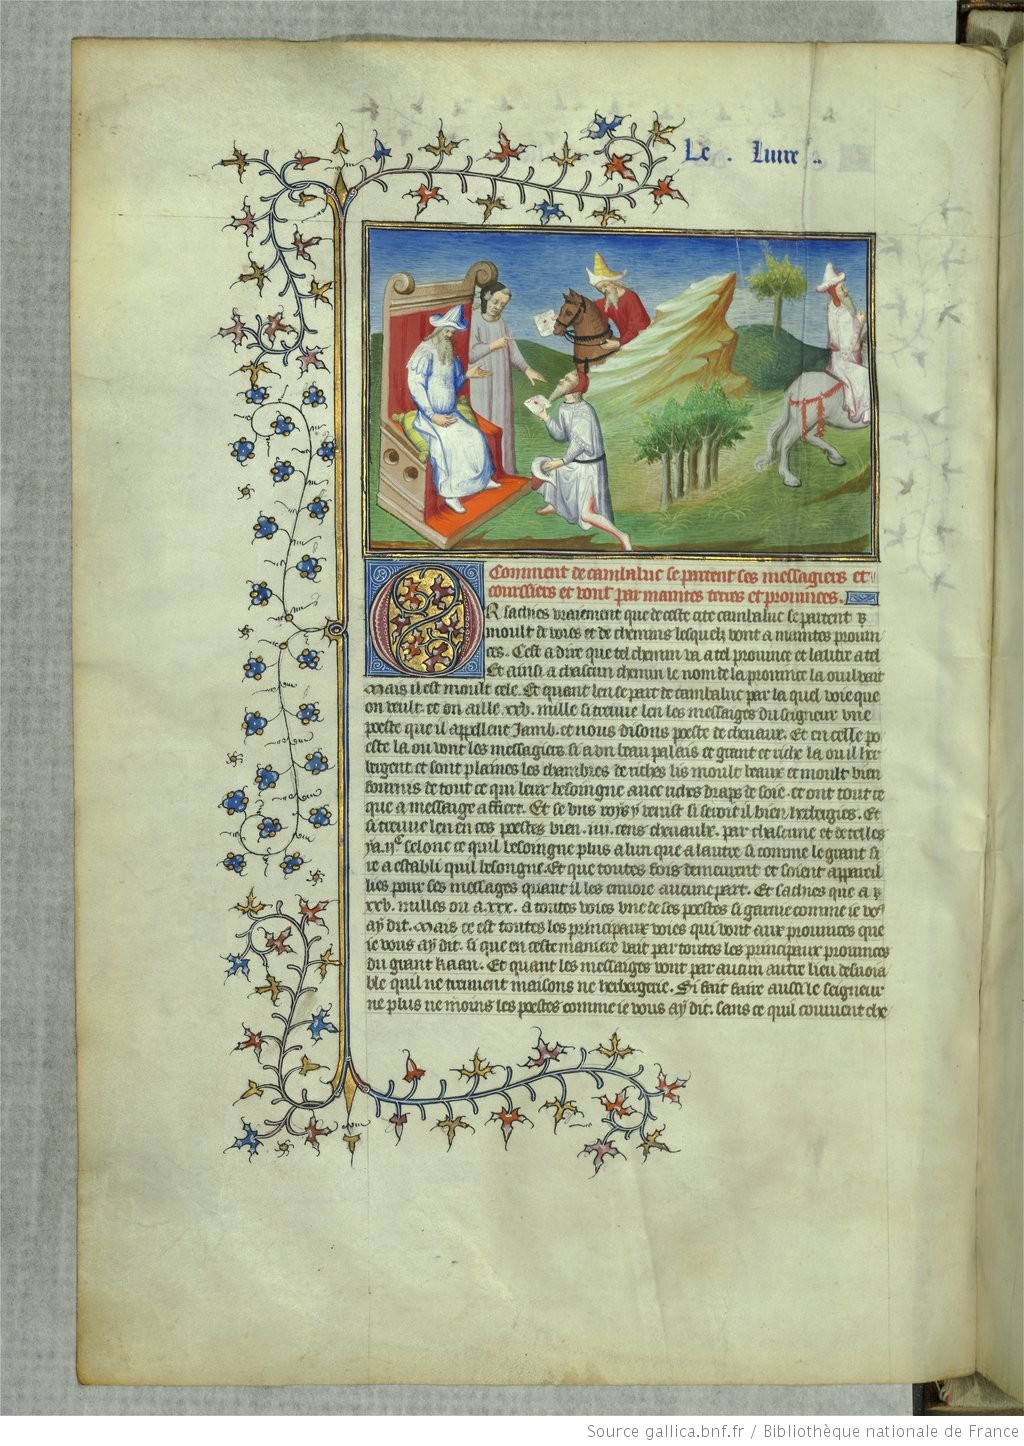 Le . Liure ..
Comment de cambaluc se partent ses messagiers et
coursiers et vont par maintes terres et prouinces.
OR sachies vraiement que de ceste cite cambaluc se partent
moult de voies et de chemins lesquelz vont a maintes prouin
ces. Cest a dire que tel chemin va a tel prouince et lautre a tel
Et ainsi a chascun chemin le nom de la prouince la ou il vait
Mais il est moult cele. Et quant len se part de cambaluc par la quel voie que
on veult. et on aille .xxv. mille si treuue len les messaiges du seigneur vne
poeste que il appellent Jamb. et nous disons poeste de cheuaux. Et en celle po
este la ou vont les messagiers si a vn beau palais et grant et riche la ou il her
bergent et sont plaines les chambres de riches lis moult beaux et moult bien
fournis de tout ce qui leur besoingne auec riches draps de soie. et ont tout ce
que a messaige affiert. Et se vns roys y venist si seroit il bien herbegies. Et
si treuue len en ces poestes bien .iiii. cens cheuaulx. par chascune et de telles
ya .ijc selonc ce quil besoingne plus a lun que a lautre si comme le grant si
re a establi quil besongne. Et que toutes fois demeurent et soient appareil
lies pour ses messages quant il les enuoie aucune part. Et sachies que a
xxv. milles ou a .xxx. a toutes voies vne de ses poestes si garnie comme ie vous
ay dit. Mais ce est toutes les principaux voies qui vont aux prouinces que
ie vous ay dit. si que en ceste maniere vait par toutes les principaux prouinces
du grant kaan. Et quant les messaiges vont par aucun autre lieu desuoia
ble quil ne treuuent maisons ne herbergerie. Si fait faire aussi le seigneur
ne plus ne moins les poestes comme ie vous ay dit. sans ce quil couuient che
Source gallica.bnf.fr / Bibliothèque nationale de France